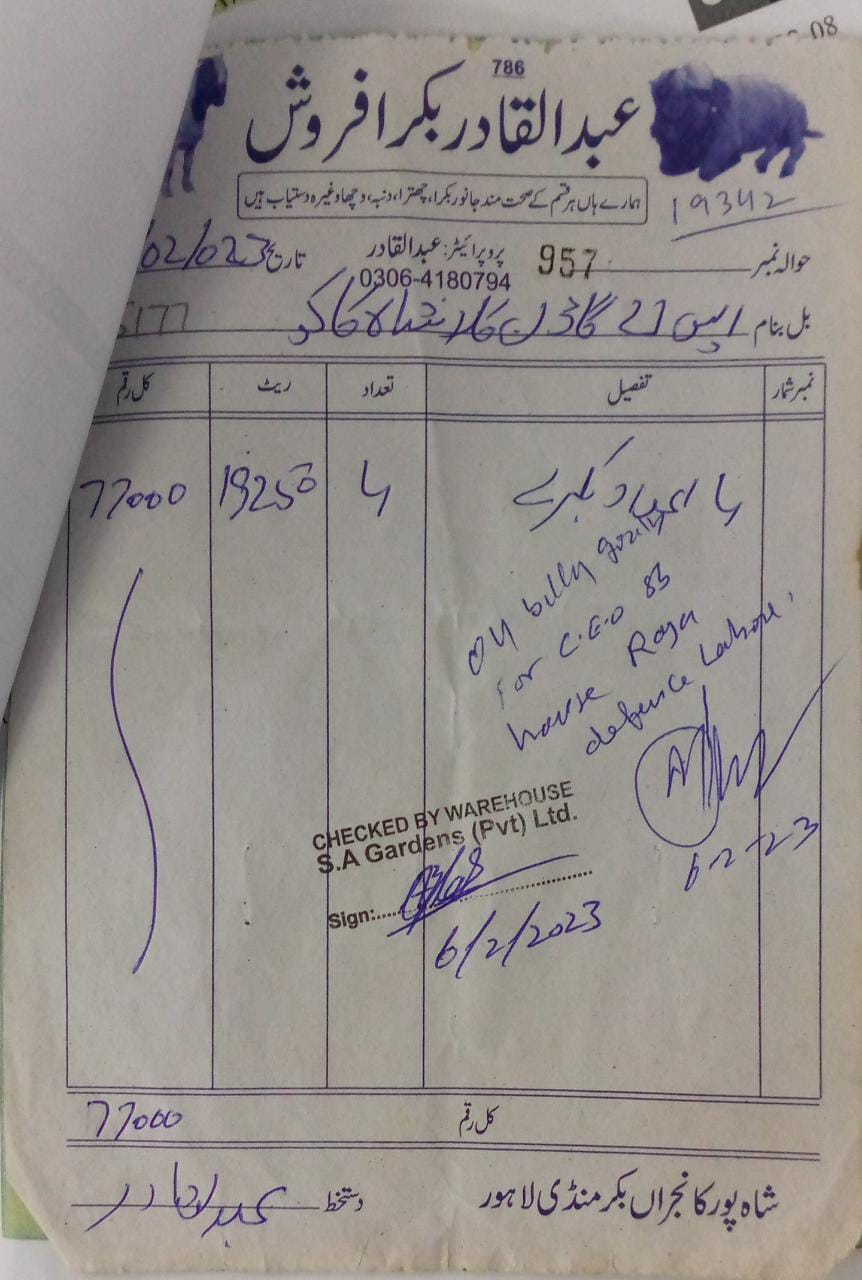 786
عبدالقادر بکرا فروش
ہمارے ہاں ہر قسم کے صحت مند جانور بکرا، چھترا، دنبہ، وچھا وغیرہ دستیاب ہیں
19342
حوالہ نمبر 957
پروپرائیٹر: عبدالقادر
0306-4180794
تاریخ /02/023
بل بنام ایس اے گارڈن
نمبر شمار تفصیل تعداد ریٹ کل رقم
۴ عدد بکرے ۴ 19250 77000
04 billy goats
for C.E.O 83
house Raya
defence Lahore.
6-2-23
CHECKED BY WAREHOUSE
S.A Gardens (Pvt) Ltd.
Sign:
6/2/2023
کل رقم 77000
شاہ پور کانجراں بکر منڈی لاہور
دستخط عبدالقادر